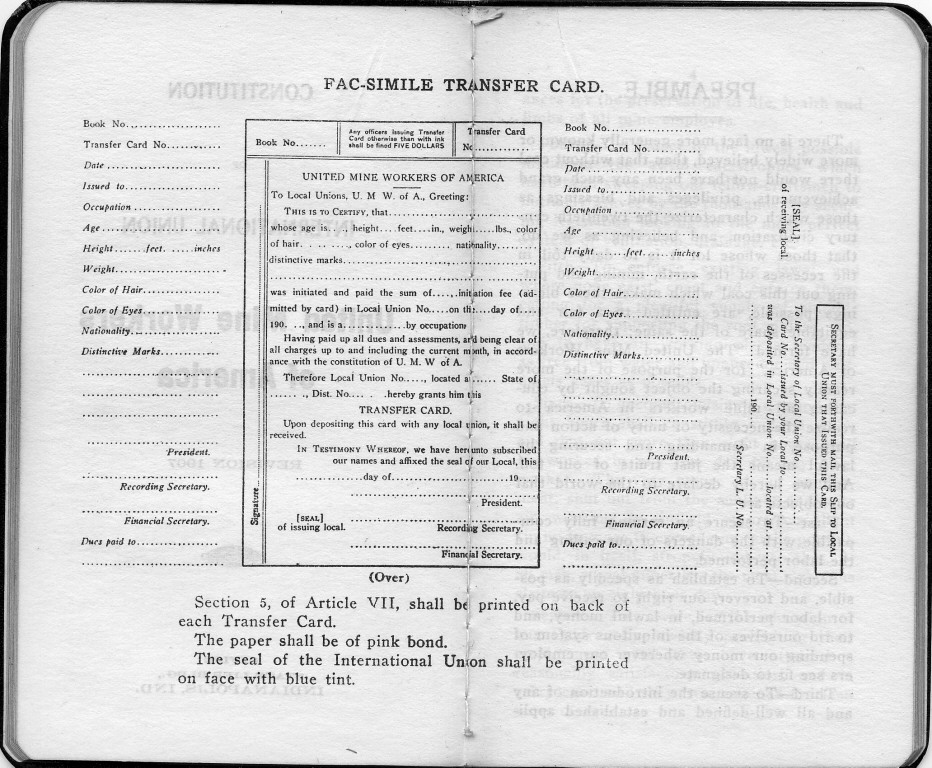 FAC-SIMILE TRANSFER CARD.
Book No.......................
Transfer Card No.............
Date ............................
Issued to.......................
Occupation .....................
Age..............................
Height.......feet.......inches
Weight...........................
Color of Hair...................
Color of Eyes...................
Nationality......................
Distinctive Marks.............
President.
Recording Secretary.
Financial Secretary.
Dues paid to...................
Book No.......
Any officers issuing Transfer
Card otherwise than with ink
shall be fined FIVE DOLLARS
Transfer Card
No.............
UNITED MINE WORKERS OF AMERICA
To Local Unions, U. M W. of A., Greeting:
THIS IS TO CERTIFY, that..............................
whose age is...., height....feet....in., weight.....lbs., color
of hair. . . . ., color of eyes........ nationality............,
distinctive marks.......................................
was initiated and paid the sum of......initiation fee (ad-
mitted by card) in Local Union No.....on the....day of....
190. .., and is a..............by occupation.
Having paid up all dues and assessments, and being clear of
all charges up to and including the current month, in accord-
ance with the constitution of U. M. W of A.
Therefore Local Union No...., located at...... State of
. ...... ., Dist. No.... . .hereby grants him this
TRANSFER CARD.
Upon depositing this card with any local union, it shall be
received.
IN TESTIMONY WHEREOF, we have hereunto subscribed
our names and affixed the seal of our Local, this
.................day of.............................19....
President.
[SEAL]
of issuing local.
Recording Secretary.
Financial Secretary.
Signature
(Over)
Book No.......................
Transfer Card No.............
Date ............................
Issued to.......................
Occupation .....................
Age ..............................
Height .......feet.......inches
Weight...........................
Color of Hair...................
Color of Eyes...................
Nationality......................
Distinctive Marks.............
President.
Recording Secretary.
Financial Secretary.
Dues paid to...................
SECRETARY MUST FORTHWITH MAIL THIS SLIP TO LOCAL
UNION THAT ISSUED THIS CARD.
To the Secretary of Local Union No............
Card No....issued by your Local to...........
was deposited in Local Union No......located at......
..........190....
Secretary L. U. No.......
[SEAL]
of receiving local.
Section 5, of Article VII, shall be printed on back of
each Transfer Card.
The paper shall be of pink bond.
The seal of the International Union shall be printed
on face with blue tint.